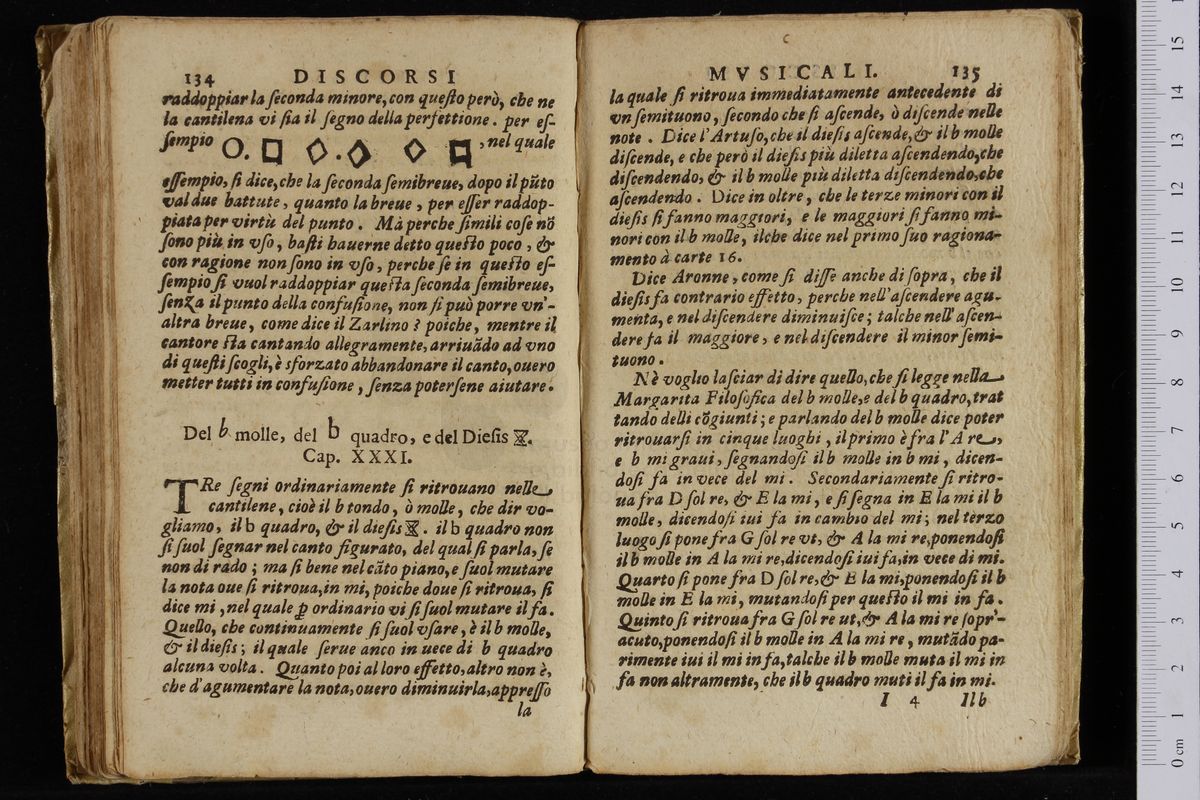 134 DISCORSI
raddoppiar la ſeconda minore, con queſto però, che ne
la cantilena vi ſia il ſegno della perfettione. per eſ-
ſempio , nel quale
eſſempio, ſi dice, che la ſeconda ſemibreue, dopo il pũto
val due battute, quanto la breue, per eſſer raddop-
piata per virtù del punto. Mà perche ſimili coſe nõ
ſono più in vſo, baſti hauerne detto queſto poco, &
con ragione non ſono in vſo, perche ſe in queſto eſ-
ſempio ſi vuol raddoppiar queſta ſeconda ſemibreue,
ſenza il punto della confuſione, non ſi può porre vn'-
altra breue, come dice il Zarlino? poiche, mentre il
cantore ſta cantando allegramente, arriuãdo ad vno
di queſti ſcogli, è sforzato abbandonare il canto, ouero
metter tutti in confuſione, ſenza poterſene aiutare.
Del b molle, del b quadro, e del Dieſis X.
Cap. XXXI.
TRe ſegni ordinariamente ſi ritrouano nelle
cantilene, cioè il b tondo, ò molle, che dir vo-
gliamo, il b quadro, & il dieſis X. il b quadro non
ſi ſuol ſegnar nel canto figurato, del qual ſi parla, ſe
non di rado; ma ſi bene nel cãto piano, e ſuol mutare
la nota oue ſi ritroua, in mi, poiche doue ſi ritroua, ſi
dice mi, nel quale ꝑ ordinario vi ſi ſuol mutare il fa.
Quello, che continuamente ſi ſuol vſare, è il b molle,
& il dieſis; il quale ſerue anco in uece di b quadro
alcuna volta. Quanto poi al loro effetto, altro non è,
che d'agumentare la nota, ouero diminuirla, appreſſo
la
MVSICALI. 135
la quale ſi ritroua immediatamente antecedente di
vn ſemituono, ſecondo che ſi aſcende, ò diſcende nelle
note. Dice l'Artuſo, che il dieſis aſcende, & il b molle
diſcende, e che però il dieſis più diletta aſcendendo, che
diſcendendo, & il b molle più diletta diſcendendo, che
aſcendendo. Dice in oltre, che le terze minori con il
dieſis ſi fanno maggiori, e le maggiori ſi fanno mi-
nori con il b molle, ilche dice nel primo ſuo ragiona-
mento à carte 16.
Dice Aronne, come ſi diſſe anche di ſopra, che il
dieſis fa contrario effetto, perche nell'aſcendere agu-
menta, e nel diſcendere diminuiſce; talche nell'aſcen-
dere fa il maggiore, e nel diſcendere il minor ſemi-
tuono.
Nè voglio laſciar di dire quello, che ſi legge nella
Margarita Filoſofica del b molle, e del b quadro, trat
tando delli cõgiunti; e parlando del b molle dice poter
ritrouarſi in cinque luoghi, il primo è fra l'A re,
e b mi graui, ſegnandoſi il b molle in b mi, dicen-
doſi fa in vece del mi. Secondariamente ſi ritro-
ua fra D ſol re, & E la mi, e ſi ſegna in E la mi il b
molle, dicendoſi iui fa in cambio del mi; nel terzo
luogo ſi pone fra G ſol re vt, & A la mi re, ponendoſi
il b molle in A la mi re, dicendoſi iui fa, in vece di mi.
Quarto ſi pone fra D ſol re, & E la mi, ponendoſi il b
molle in E la mi, mutandoſi per queſto il mi in fa.
Quinto ſi ritroua fra G ſol re ut, & A la mi re ſopr'-
acuto, ponendoſi il b molle in A la mi re, mutãdo pa-
rimente iui il mi in fa, talche il b molle muta il mi in
fa non altramente, che il b quadro muti il fa in mi.
I 4 Il b